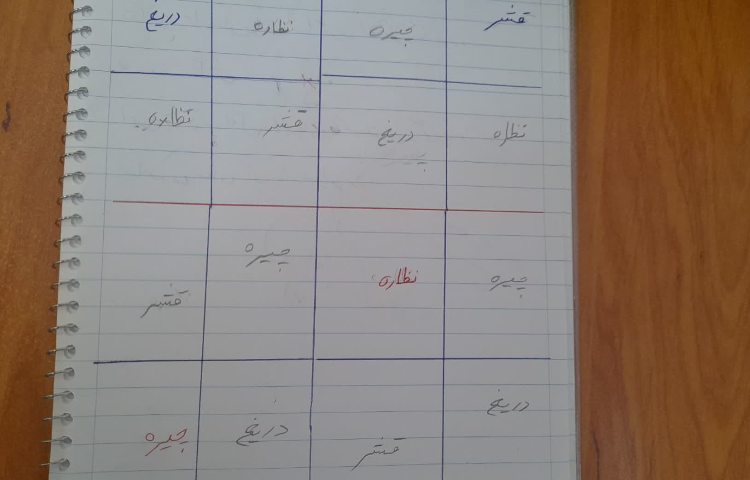 قشر چیره نظاره دریغ
نظاره دریغ قشر نظاره
چیره نظاره چیره قشر
دریغ قشر دریغ چیره